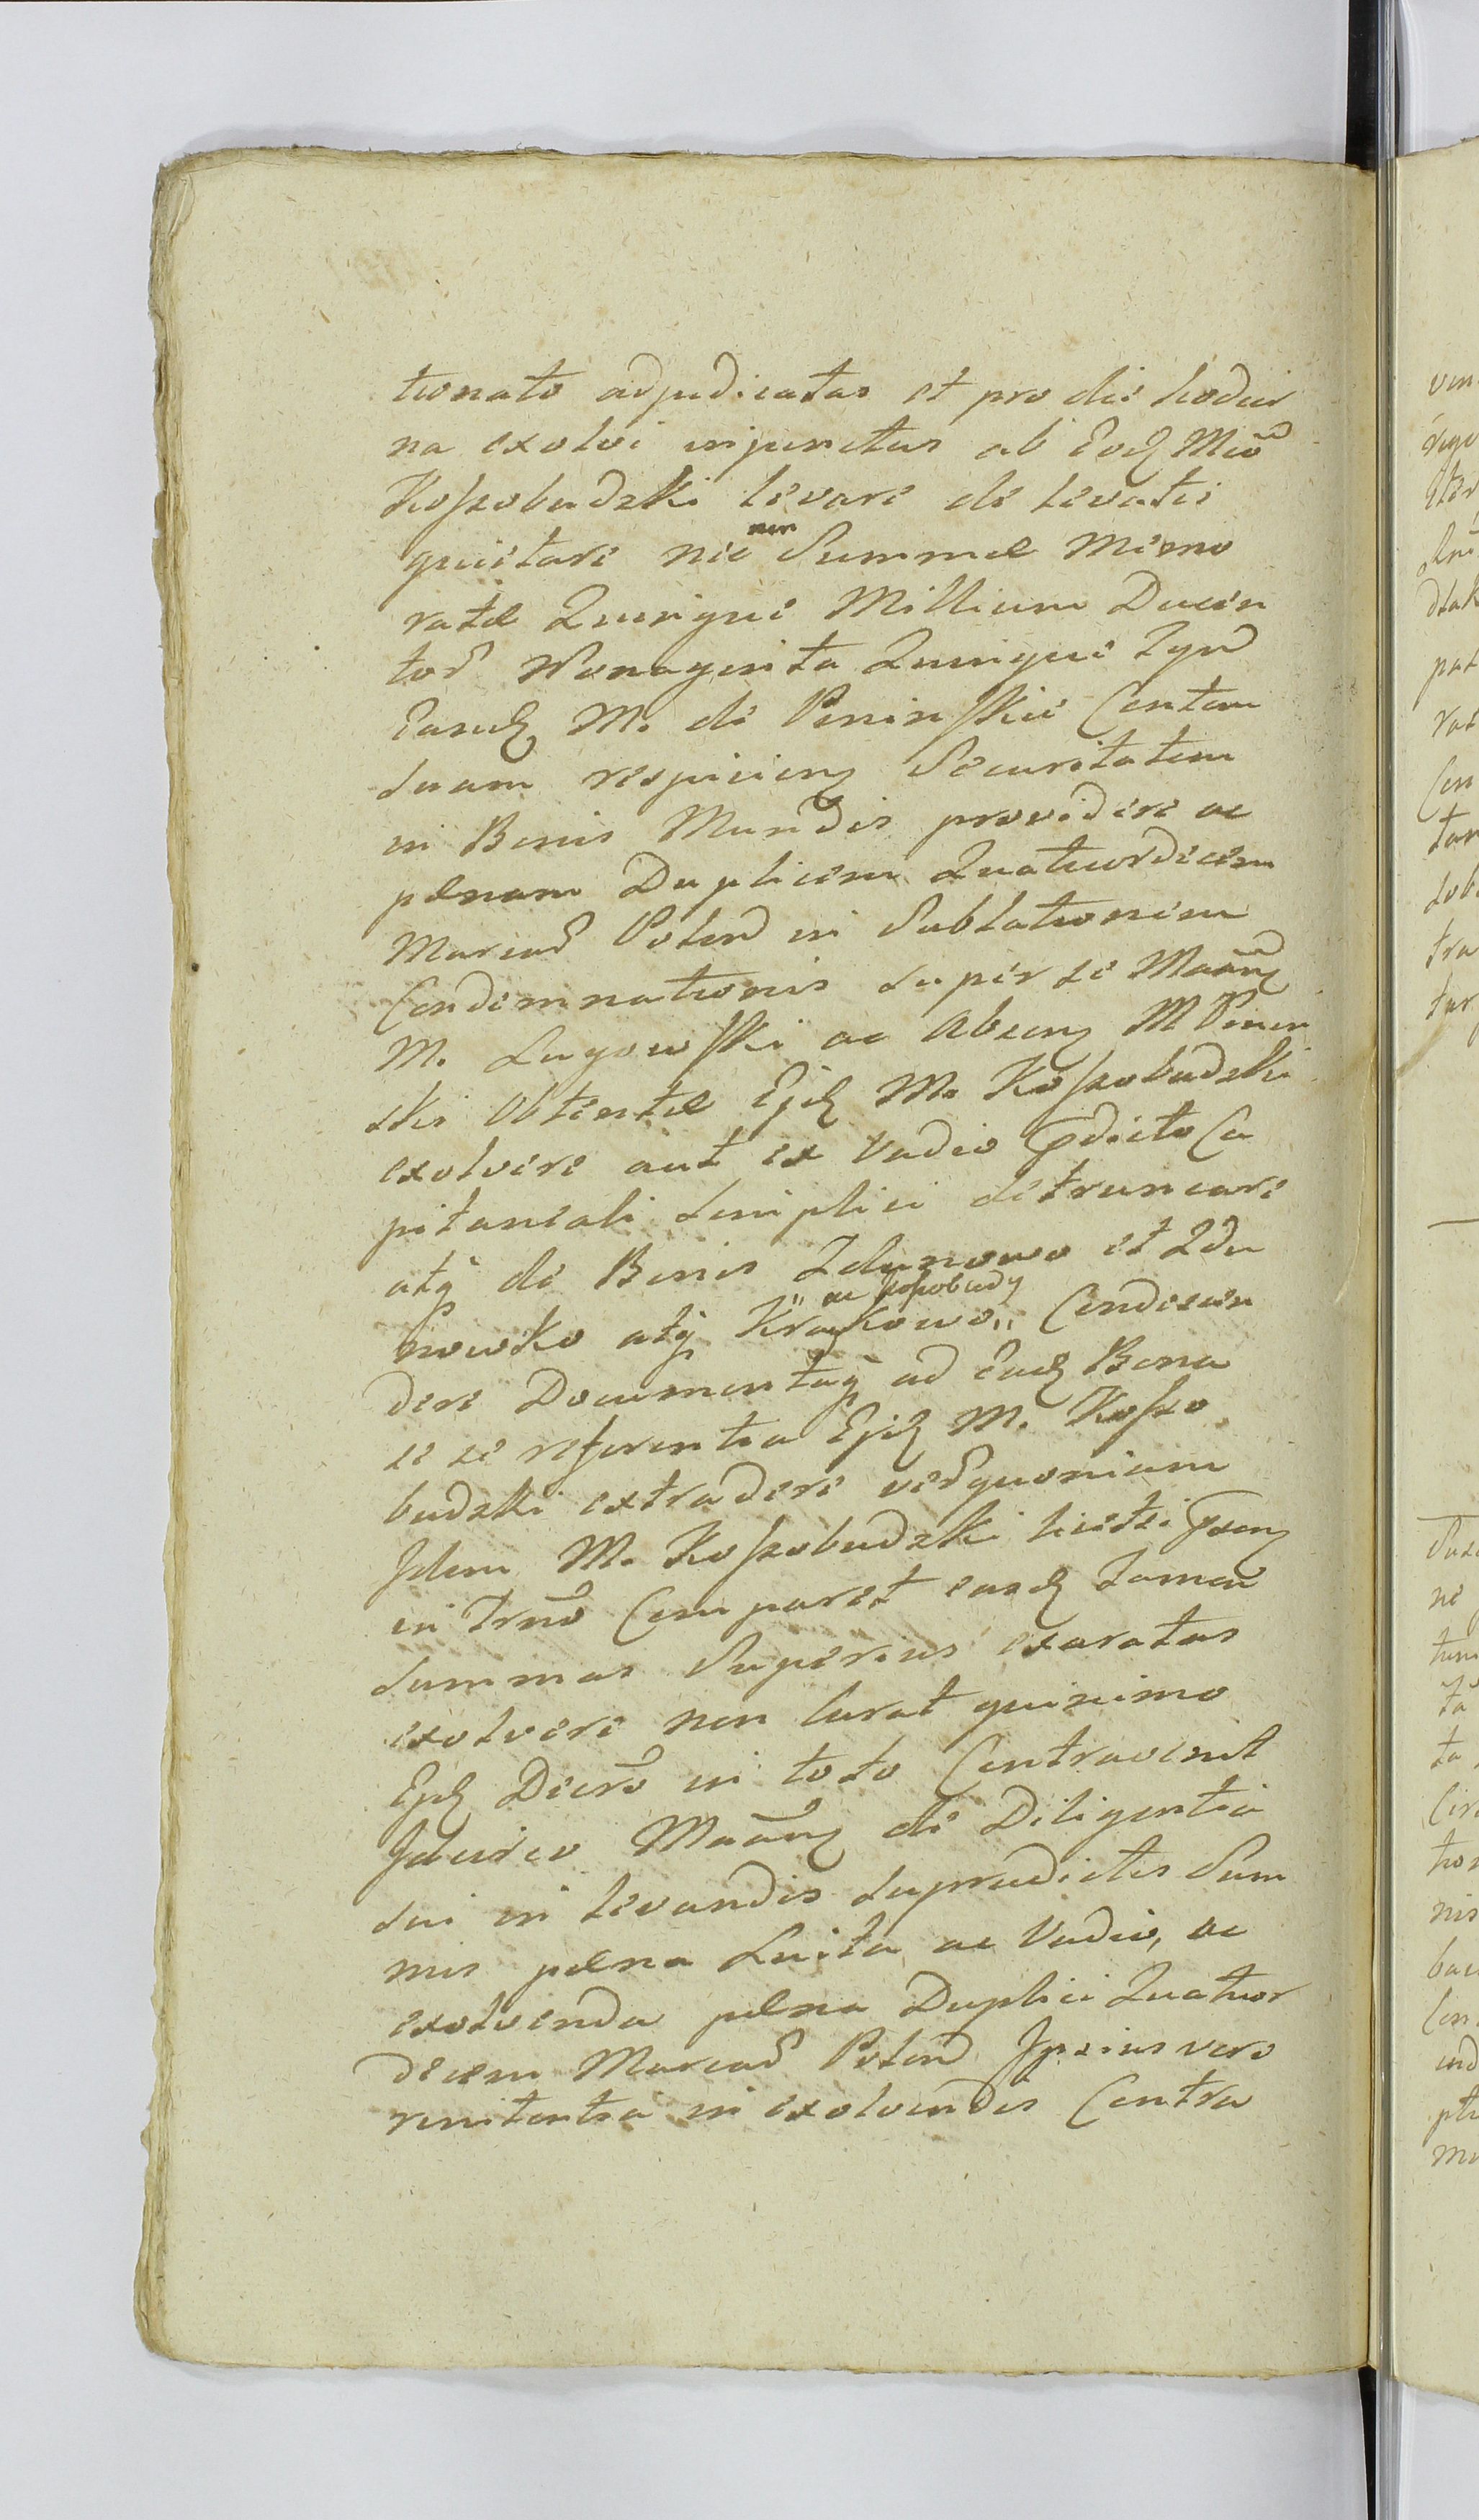 tionato adjudicatas et pro die hodier
na exolvi injunctas ab Eod Mco
Kossobudzki levare de levatis
quietare nec non Summæ Memo
ratæ Quinque Millium Ducen
tor Nonaginta Quinque
Eand M. de Peninskie Centam
suam respicien Securitatem
in Bonis Mundis providere ac
pænam Duplicem Quatuordecem
Marcar Polon in Sublationem
Condemnationis super se
M. Lugowski ac Absen M Penin
ski Obtentæ Ejd M. Kossobudzki
exolvere aut ex Vadio pdicto Ca
pitaneali simplici detruncare
atq de Bonis Zdunowo et Zdu
nowko atq Kraykowo ac Kossobudy Condescen
dere Documentaq ad Ead Bona
se se referentia Ejd M. Kosso
budzki extradere verquoniam
Idem M. Kossobudzki licet
in Trno Comparet easd tamen
summas Superius exaratas
exolvere non curat quinimo
Ejd Decro in toto Contravenit
Ideirco de Diligentia
sui in levandis supradictis Sum
mis pæna Luita ac Vadio, ac
exolvenda pæna Duplici Quatuor
decem Marcar Polon Ipsius vero
renitentia in exolvendis Contra
ven
pat
rat
Con
tan
tra
tur
ne
ta
nis